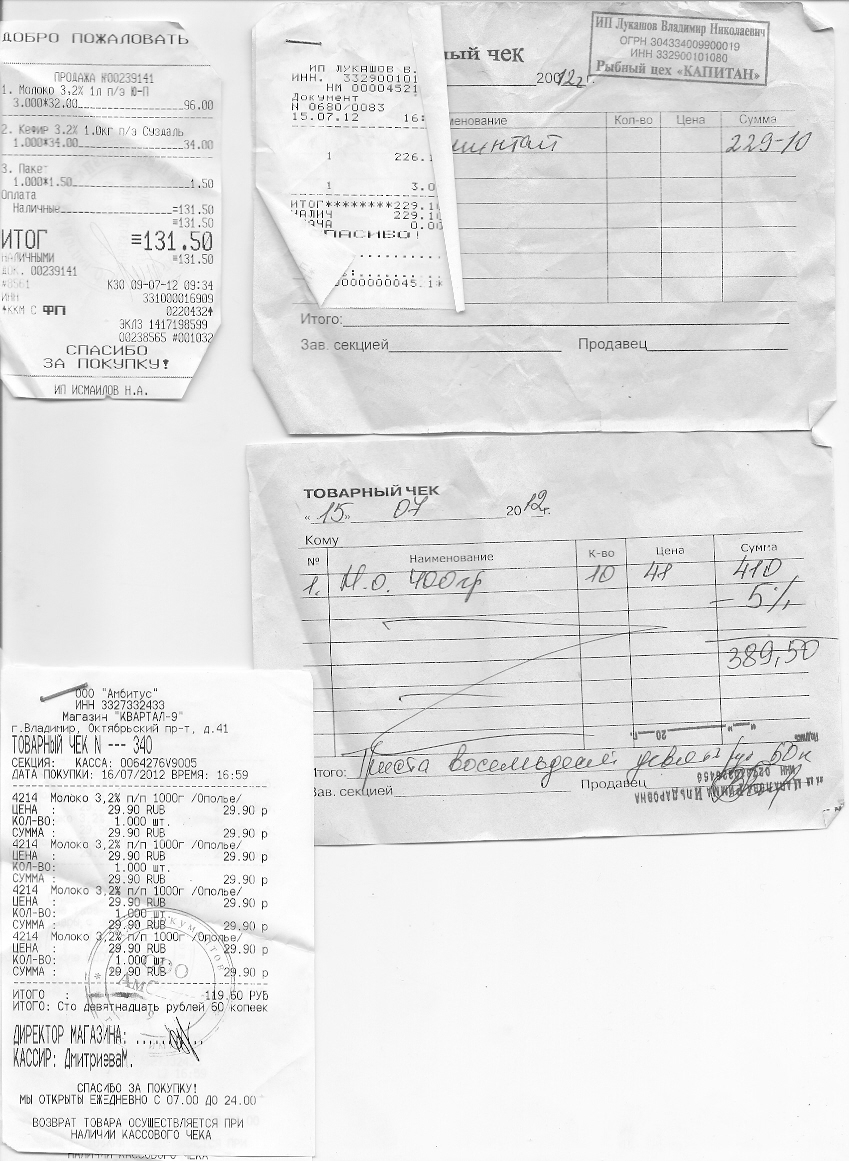 ДОБРО ПОЖАЛОВАТЬ
ПРОДАЖА №00239141
1. Молоко 3,2% 1л п/э Ю-П
3.000*32.00 96.00
2. Кефир 3.2% 1.0кг п/э Суздаль
1.000*34.00 34.00
3. Пакет
1.000*1.50 1.50
Оплата
Наличные =131.50
=131.50
ИТОГ =131.50
НАЛИЧНЫМИ =131.50
ДОК. 00239141
КЗО 09-07-12 09:34
ИНН 331000016909
*ККМ С ФП 0220432*
ЭКЛЗ 1417198599
00238565 #001032
СПАСИБО
ЗА ПОКУПКУ!
ИП ИСМАИЛОВ Н.А.
ИП ЛУКАШОВ В.
ИНН. 332900101
НМ 00004521
Документ
N 0680/0083
15.07.12 16:
1 226.1
1 3.0
ИТОГ********229.10
НАЛИЧ 229.10
0.00
ПАСИБО!
0000000045.1*
ый чек
2012г.
ИП Лукашов Владимир Николаевич
ОГРН 304334009900019
ИНН 332900101080
Рыбный цех «КАПИТАН»
менование Кол-во Цена Сумма
минтай 229-10
Итого:
Зав. секцией Продавец
ТОВАРНЫЙ ЧЕК
«15» 07 2012г.
Кому
№ Наименование К-во Цена Сумма
1. М.О. 400гр 10 41 410
– 5%
389,50
"__"______ 20__
Подпись
Итого: Триста восемьдесят девять руб 50 к
Зав. секцией Продавец
ИЛЬДАРОВНА
ООО "Амбитус"
ИНН 3327332433
Магазин "КВАРТАЛ-9"
г.Владимир, Октябрьский пр-т, д.41
ТОВАРНЫЙ ЧЕК N --- 340
СЕКЦИЯ: КАССА: 0064276V9005
ДАТА ПОКУПКИ: 16/07/2012 ВРЕМЯ: 16:59
4214 Молоко 3,2% п/п 1000г /Ополье/
ЦЕНА : 29.90 RUB 29.90 р
КОЛ-ВО: 1.000 шт.
СУММА : 29.90 RUB 29.90 р
4214 Молоко 3,2% п/п 1000г /Ополье/
ЦЕНА : 29.90 RUB 29.90 р
КОЛ-ВО: 1.000 шт.
СУММА : 29.90 RUB 29.90 р
4214 Молоко 3,2% п/п 1000г /Ополье/
ЦЕНА : 29.90 RUB 29.90 р
КОЛ-ВО: 1.000 шт.
СУММА : 29.90 RUB 29.90 р
4214 Молоко 3,2% п/п 1000г /Ополье/
ЦЕНА : 29.90 RUB 29.90 р
КОЛ-ВО: 1.000 шт.
СУММА : 29.90 RUB 29.90 р
ИТОГО : 119.60 РУБ
ИТОГО: Сто девятнадцать рублей 60 копеек
ДИРЕКТОР МАГАЗИНА: ........
КАССИР: ДмитриеваМ.
СПАСИБО ЗА ПОКУПКУ!
МЫ ОТКРЫТЫ ЕЖЕДНЕВНО С 07.00 ДО 24.00
ВОЗВРАТ ТОВАРА ОСУЩЕСТВЛЯЕТСЯ ПРИ
НАЛИЧИИ КАССОВОГО ЧЕКА
НАЛИЧИИ КАССОВОГО ЧЕКА